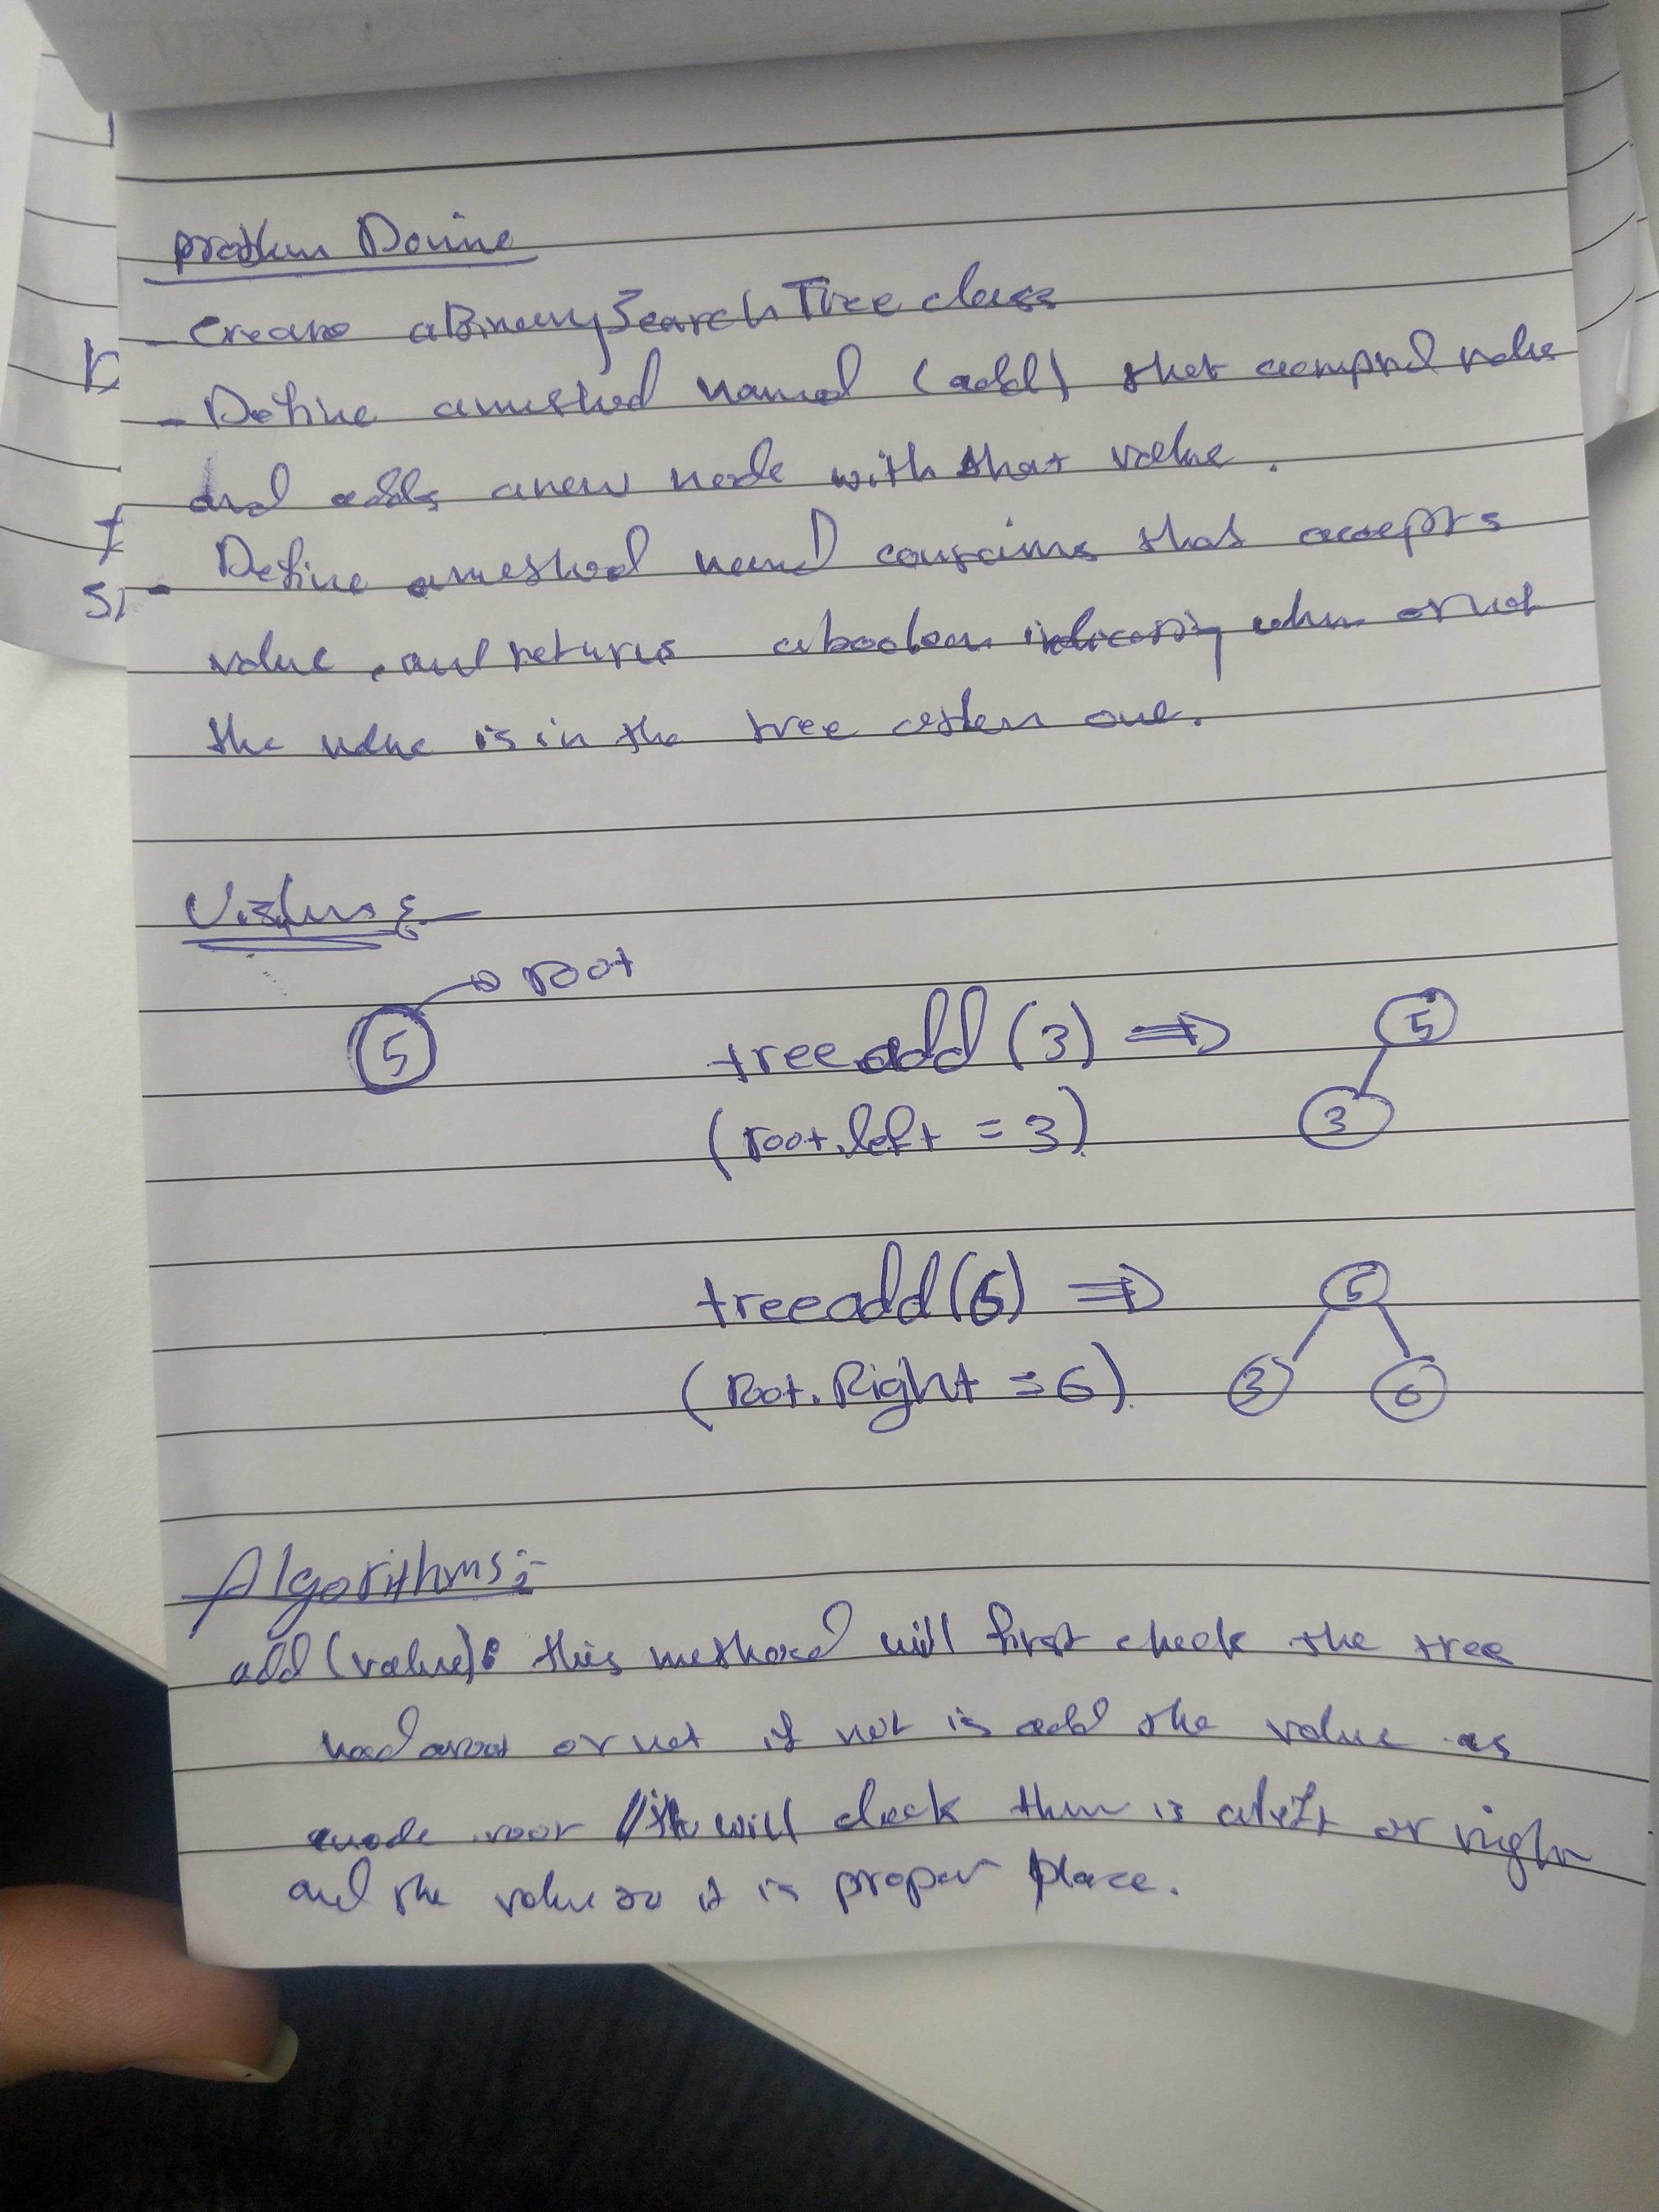 problem Domine
- Create a BinarySearchTree class
- Define a method named (add) that accepted value
and adds a new node with that value.
- Define a method named contains that accepts
value, and returns a boolean indicating or not
the value is in the tree one.
Visluns:-
root
5
treeadd (3) =>
5
3
(root.left = 3)
treeadd (6) =>
5
3
6
(root.Right = 6)
Algorithms:-
add (value): this method will first check the tree
had a root or not if not is add the value as
a node root // it will check there is a left or right
and the value so it is proper place.